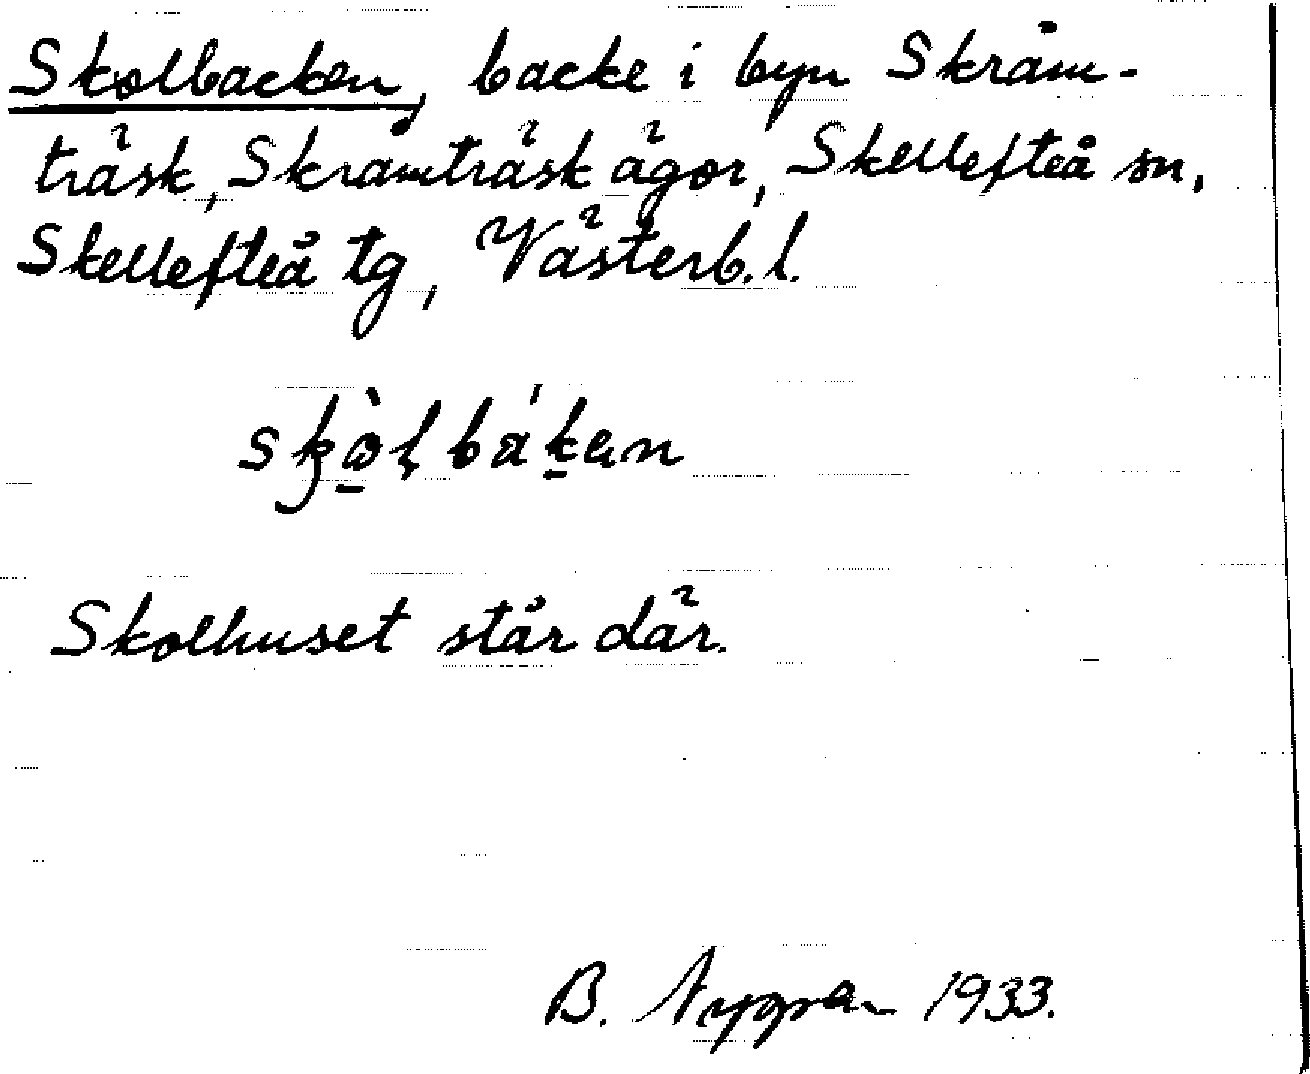 Skolbacken, backe i byn Skråm-
träsk, Skråmträsk ägor, Skellefteå sn,
Skellefteå tg, Västerb. l.
Skolhuset står där.
B. Nygren 1933.